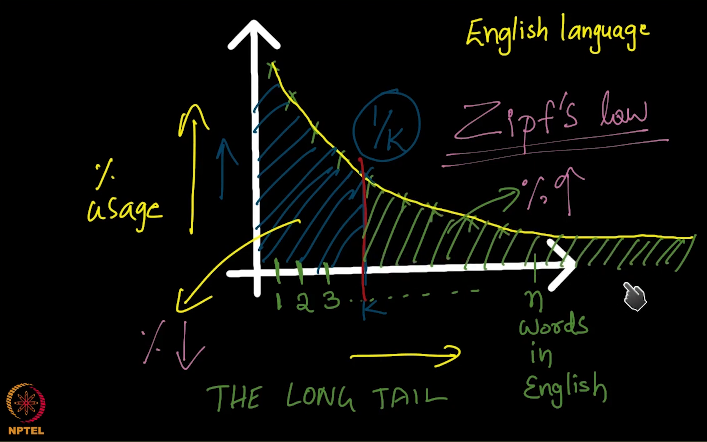 English language
1/K
Zipf's law
% ↑
% usage
1 2 3 K n
words in English
% ↓
THE LONG TAIL
NPTEL